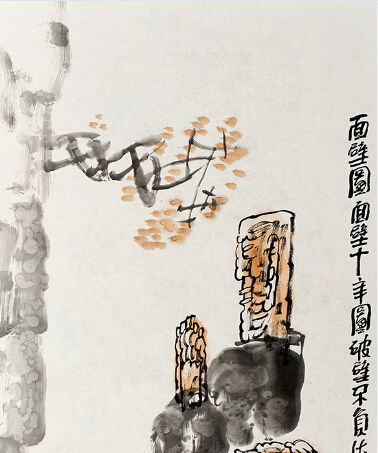 面壁圖面壁十年圖破壁不負